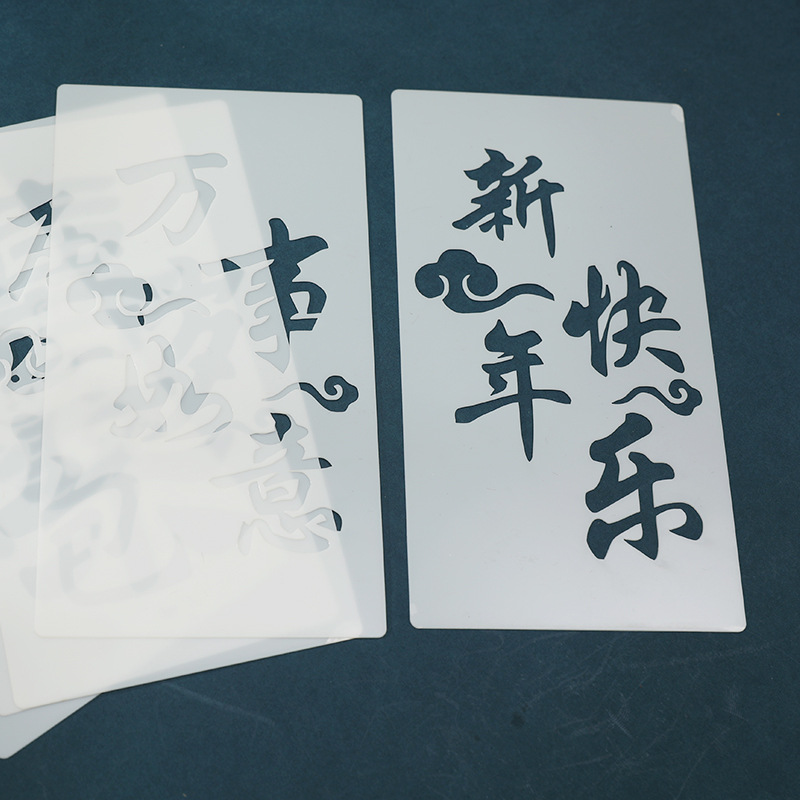 万事如意
新年快乐